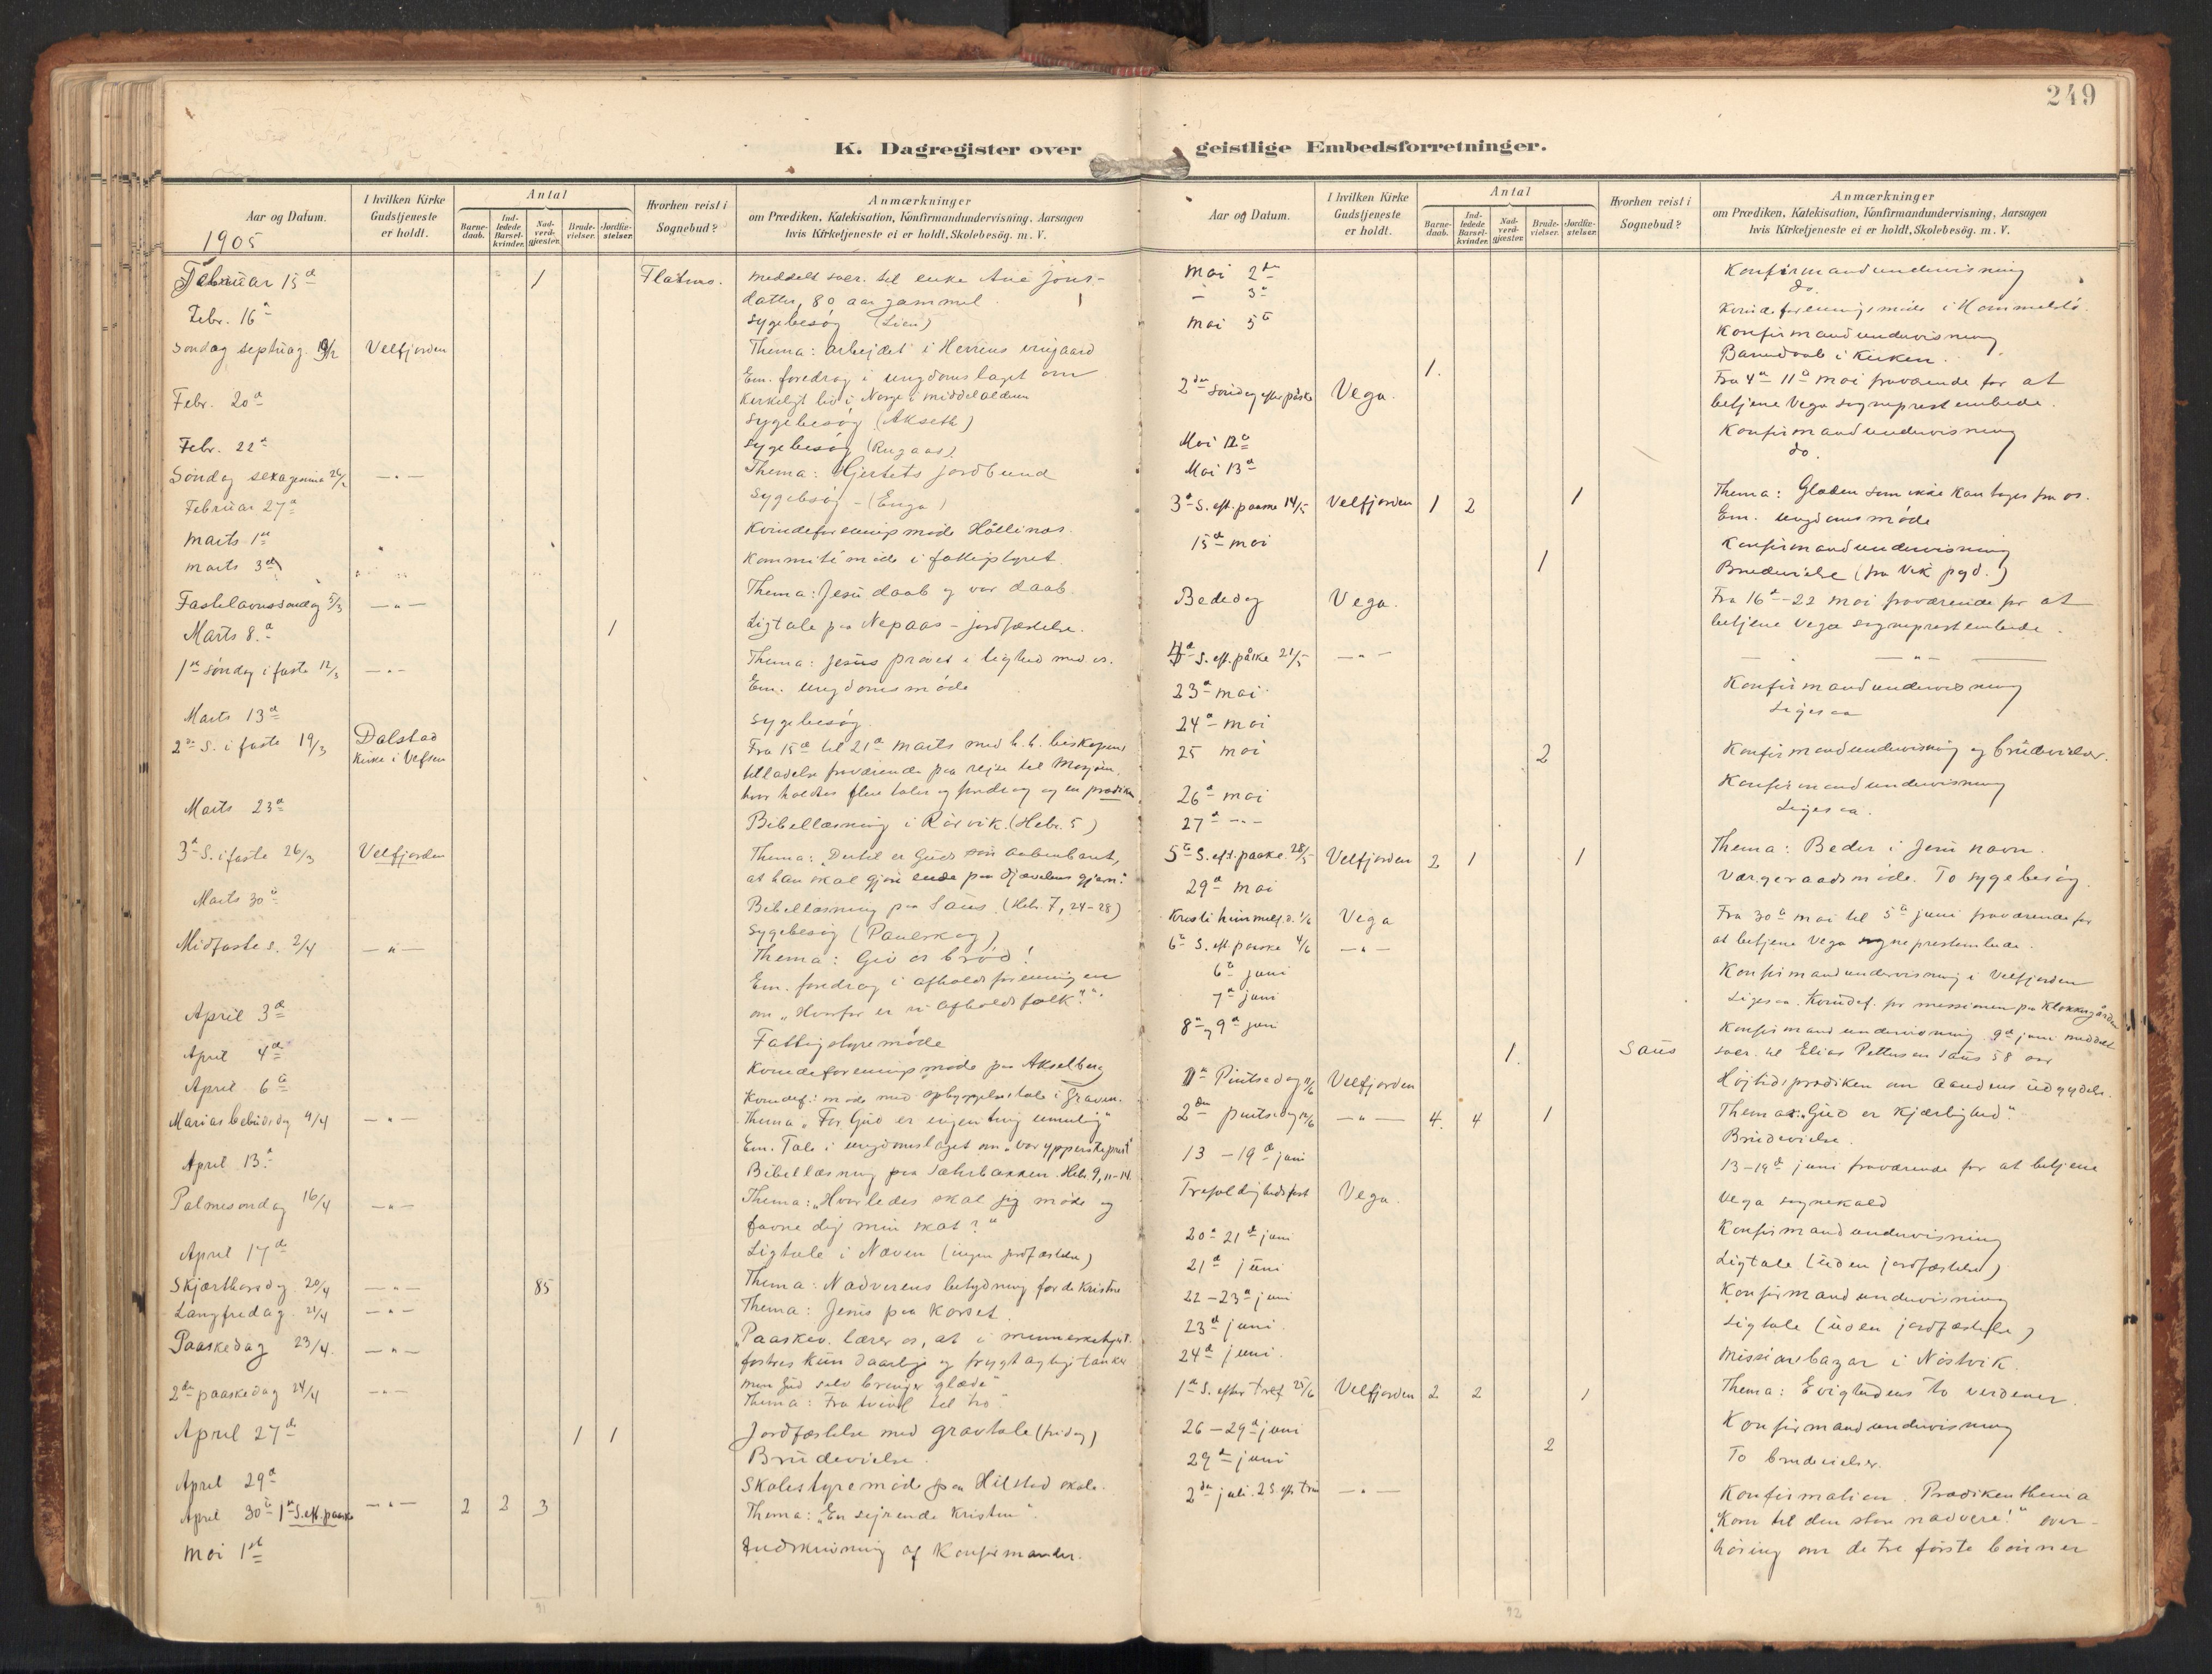 249
K. Dagregister over geistlige Embedsforretninger.
Aar og Datum.
1905
I hvilken Kirke Gudstjeneste er holdt.
Antal
Barne-daab.
Ind-ledede Barsel-kvinder.
Nad-verd-gjester.
Brude-vielser.
Jordfæ-stelser.
Hvorhen reist i Sognebud?
Anmærkninger
om Prædiken, Katekisation, Konfirmandundervisning, Aarsagen
hvis Kirketjeneste ei er holdt, Skolebesög. m. V.
Februar 15d 1 meddelt sacr. til enke Ane Jons-
datter, 80 aar gammel.
Febr. 16d Sygebesøg (Lien)
Søndag septuag. 19/2 Velfjorden Thema: arbejdet i Herrens vingaard
Em. foredrag i ungdomslaget om
Kirkeligt liv i Norge i middelalderen
Febr. 20d Sygebesøg (Akseth)
Febr. 22d Sygebesøg (Rugaas)
Søndag sexagesima 26/2 — " — Thema: Hjertets jordbund
Februar 27d Sygebesøg - (Enga)
Marts 1st Kvindeforeningsmøde
Marts 3d Kommitémøde i fattigstyret.
Fastelavnssøndag 5/3 — " — Thema: Jesu daab og vor daab.
Marts 8d 1 Ligtale paa Nepaas - jordfæstelse.
1st søndag i faste 12/3 — " — Thema: Jesus prøvet i lighed med os.
Em. ungdomsmøde
Marts 13d Sygebesøg.
2d S. i faste 19/3 Dolstad Kirke i Vefsen Fra 15d til 21d marts med h. h. biskopens
tilladelse fraværende paa rejse til Mosjøen,
hvor holdtes flere taler og foredrag og en prædiken
Marts 23d Bibellæsning i Rørvik. (Hebr. 5)
3d S. i faste 26/3 Velfjorden Thema: "Dertil er Guds søn aabenbaret,
at han skal gjøre ende paa djævelens gjern."
Marts 30d Bibellæsning paa Saus (Hebr. 7, 24-28)
Sygebesøg (Paulskog)
Midfaste s. 2/4 — " — Thema: Giv os brød!
Em. foredrag i afholdsforeningen
om "Hvorfor er vi afholdsfolk?"
April 3d Fattigstyremøde
April 4d Kvindeforeningsmøde paa Akselberg
April 6te Kvindef. møde med opbyggelsestale i Graven.
Marias bebudelsdg 9/4 — " — Thema "For Gud er ingen ting umulig"
Em. Tale i ungdomslaget om "vor ypperstepræst"
April 13d Bibellæsning paa Sæhrbakken. Hebr. 9, 11-14
Palmesøndag 16/4 — " — Thema: "Hvorledes skal jeg møde og
favne dig min skat?"
April 17d Ligtale i Næven (ingen jordfæstelse)
Skjærthorsdag 20/4 — " — 85 Thema: Nadverens betydning for de kristne
Langfredag 21/4 — " — Thema: Jesus paa korset.
Paaskedag 23/4 — " — "Paaskev. lærer os, at i menneskehjert.
fostres kun daarlige og frygtagtige tanker
men Gud selv bringer glæde"
2den paaskedag 24/4 — " — Thema: Fra tvivl til tro.
April 27d 1 1 Jordfæstelse med gravtale (friday)
Brudevielse.
April 29d Skolestyremøde paa Hilstad skole.
April 30te 1st S. eft. paaske — " — 2 2 3 Thema: "En sejrende kristen".
Mai 1st Indskrivning af Konfirmander.
91
Aar og Datum.
I hvilken Kirke Gudstjeneste er holdt.
Antal
Barne-daab.
Ind-ledede Barsel-kvinder.
Nad-verd-gjester.
Brude-vielser.
Jordfæ-stelser.
Hvorhen reist i Sognebud?
Anmærkninger
om Prædiken, Katekisation, Konfirmandundervisning, Aarsagen
hvis Kirketjeneste ei er holdt, Skolebesög. m. V.
Mai 2den Konfirmandundervisning
— 3d do.
Kvindeforeningsmøde i Hommelstø.
Mai 5te Konfirmandundervisning
1. Barnedaab i Kirken.
2den søndag efter påske Vega. Fra 4d - 11d mai fraværende for at
betjene Vega sogneprestembede.
Mai 12d Konfirmandundervisning
Mai 13d do.
3d S. eft. paaske 14/5 Velfjorden 1 2 1 Thema: Glæden som ikke kan tages fra os.
Em. ungdomsmøde
15d mai Konfirmandundervisning
1 Brudevielse (fra Vik pgd.)
Bededag Vega. Fra 16d - 22 mai fraværende for at
betjene Vega sogneprestembede.
4d S. eft. påske 21/5 — " — — " —
23d mai Konfirmandundervisning
24d mai Ligesaa
25 mai 2 Konfirmandundervisning og brudevielser.
26d mai Konfirmandundervisning
27d — " — Ligesaa.
5te S. eft. paaske 28/5 Velfjorden 2 1 1 Thema: Beder i Jesu navn.
29d mai Værgeraadsmøde. To sygebesøg.
Kristi himmelf. d. 1/6 Vega Fra 30te mai til 5te juni fraværende for
6te S. eft. paaske 4/6 — " — at betjene Vega sogneprestembede.
6te juni Konfirmandundervisning i Velfjorden
7d juni Ligesaa. Kvindef. for missionen paa Klokkergården
8d og 9d juni Konfirmandundervisning. 9d juni meddelt
1. Saus sacr. til Elias Pettersen Saus 58 aar
1st Pintsedag 11/6 Velfjorden Højtidsprædiken om Aandens udgydelse.
2den pintsedag 12/6 — " — 4. 4 1 Thema: "Gud er kjærlighed"
Brudevielse.
13 - 19d juni 13-19d juni fraværende for at betjene
Trefoldighedsfest Vega. Vega sognekald
20d 21d juni Konfirmandundervisning
21d juni Ligtale (uden jordfæstelse)
22-23d juni Konfirmandundervisning
23d juni. Ligtale (uden jordfæstelse)
24d juni. Missionsbazar i Nøstvik.
1st S. efter Tref 25/6 Velfjorden 2 2 1 Thema: Evighedens to verdener.
26-29d juni Konfirmandundervisning
29d juni 2 To brudevielser.
2den juli. 2 S. eft. Trin — " — Konfirmation. Prædikenthema
"Kom til den store nadvere!" over-
høring om de tre første bønner
92